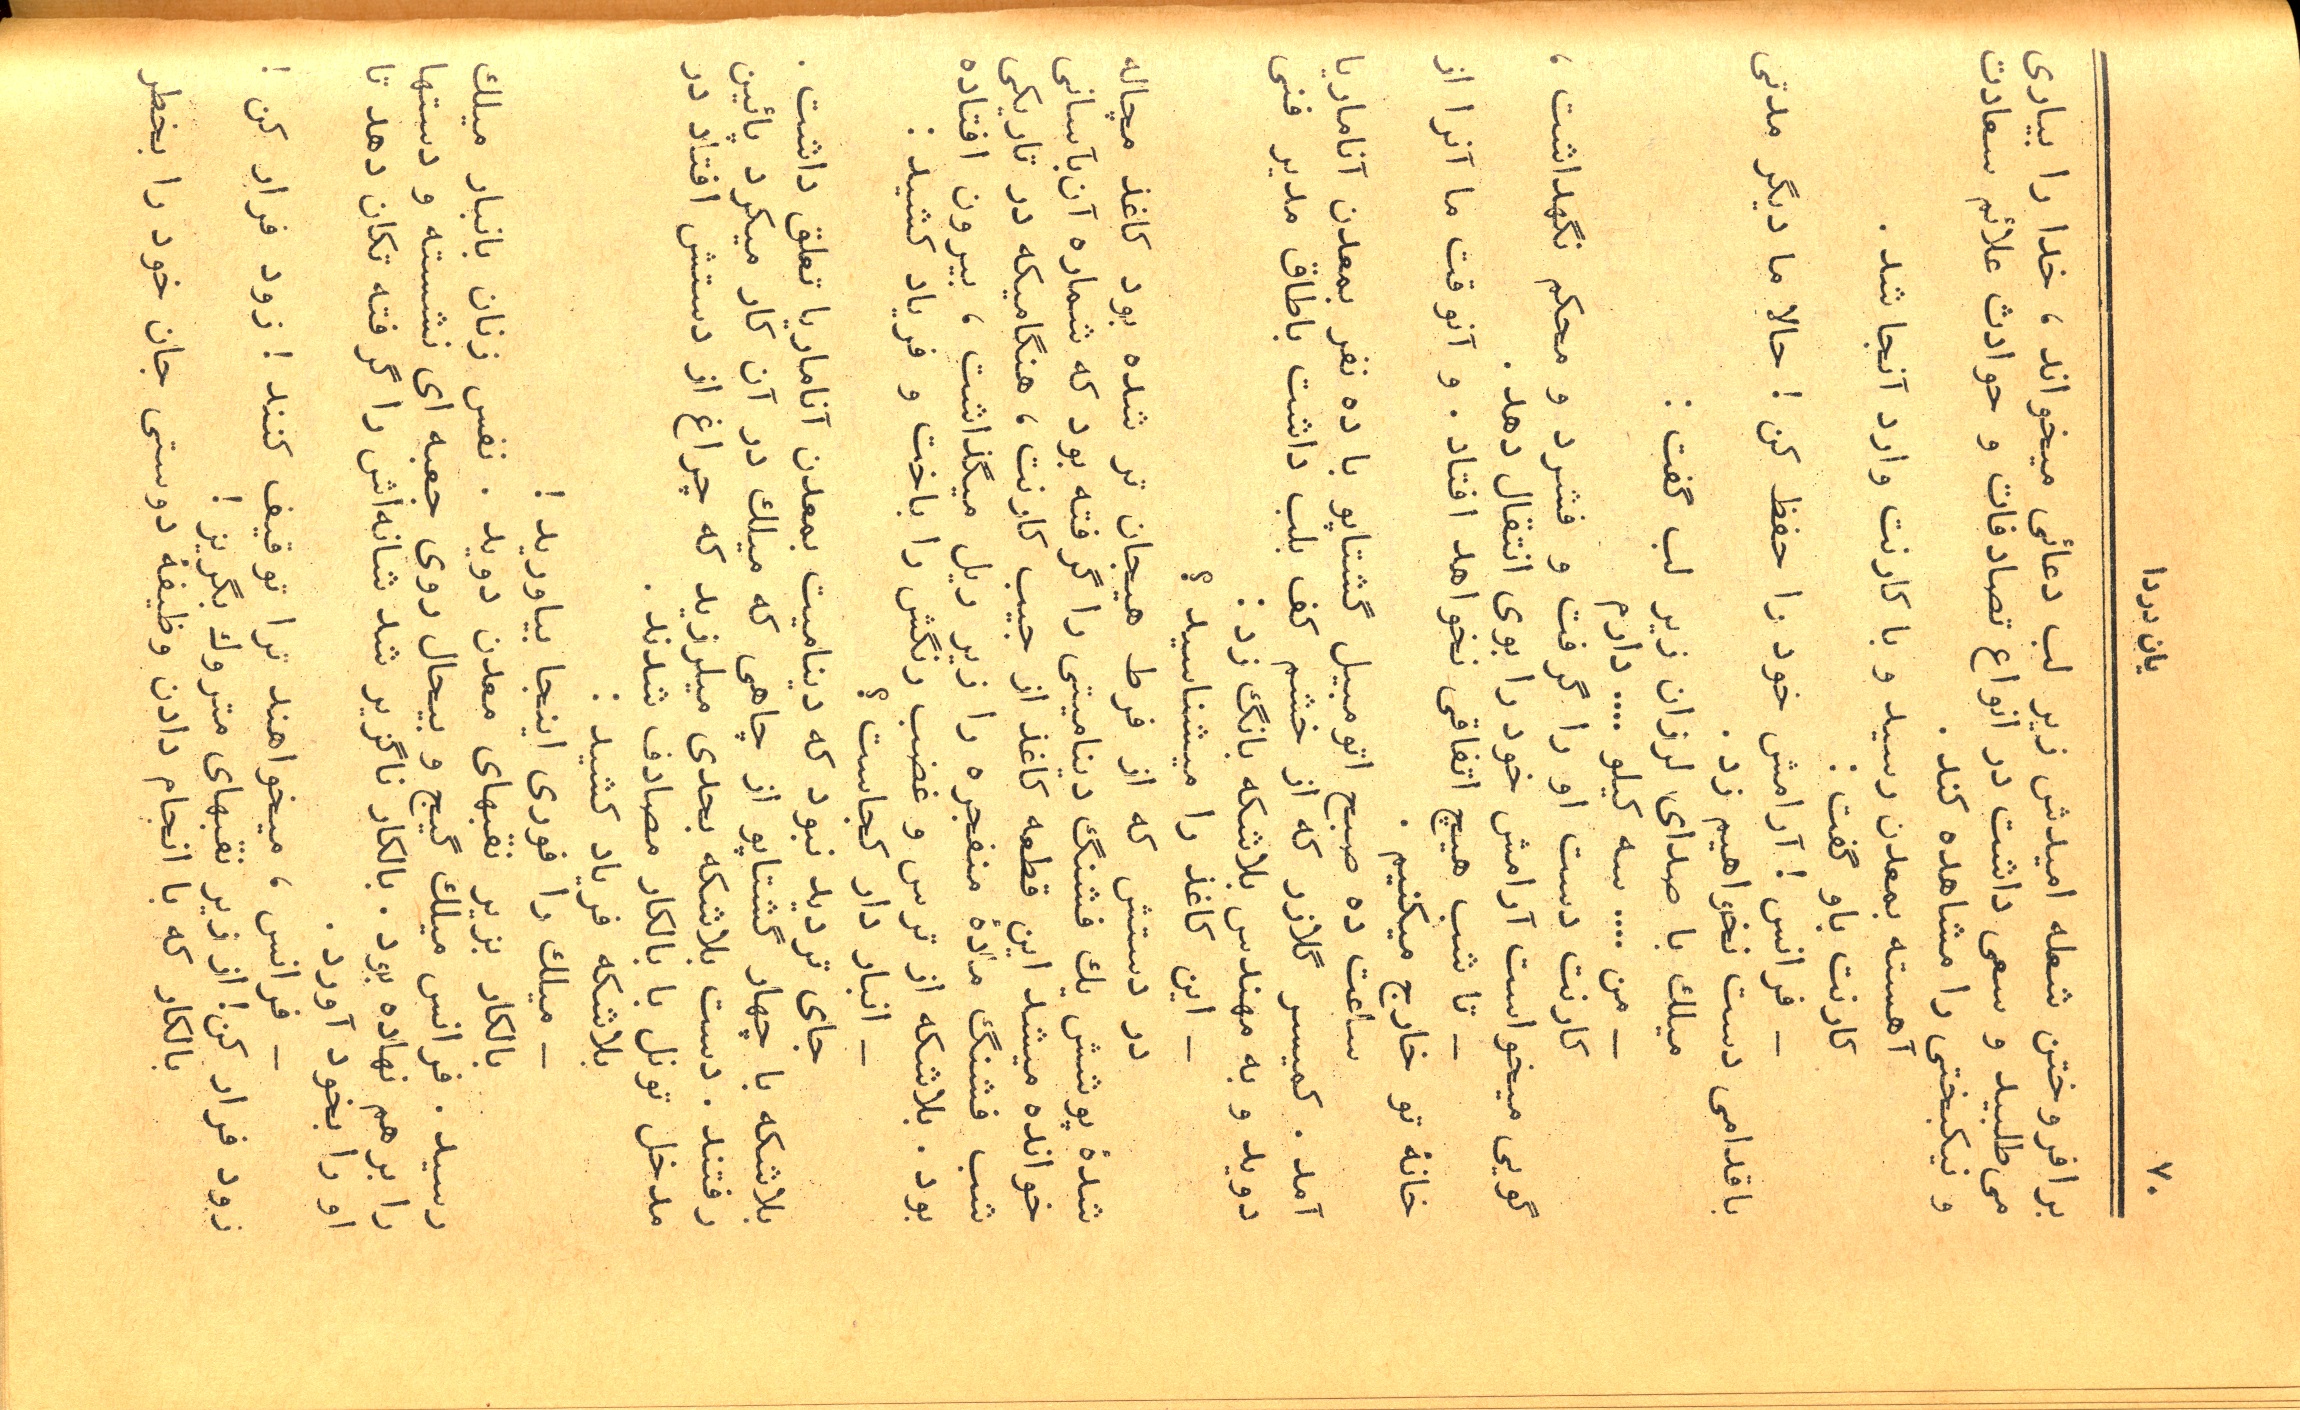 ۷۰ یان دردا
برافروختن شعله امیدش زیر لب دعائی میخواند، خدا را بیاری
می‌طلبید و سعی داشت در انواع تصادفات و حوادث علائم سعادت
و نیکبختی را مشاهده کند.
آهسته بمعدن رسید و با کارنت وارد آنجا شد.
کارنت باو گفت:
ـ فرانس! آرامش خود را حفظ کن! حالا ما دیگر مدتی
باقدامی دست نخواهیم زد.
میلك با صدای لرزان زیر لب گفت:
ـ من ... سه کیلو .... دارم
کارنت دست او را گرفت و فشرد و محکم نگهداشت،
گویی میخواست آرامش خود را بوی انتقال دهد.
ـ تا شب هیچ اتفاقی نخواهد افتاد. و آنوقت ما آنرا از
خانهٔ تو خارج میکنیم.
ساعت ده صبح اتومبیل گشتاپو با ده نفر بمعدن آناماریا
آمد. کمیسر گلازر که از خشم کف بلب داشت باطاق مدیر فنی
دوید و به مهندس بلاشکه بانگ زد:
ـ این کاغذ را میشناسید؟
در دستش که از فرط هیجان تر شده بود کاغذ مچاله
شدهٔ پوشش یك فشنگ دینامیتی را گرفته بود که شماره آن‌بآسانی
خوانده میشد این قطعه کاغذ از جیب کارنت، هنگامیکه در تاریکی
شب فشنگ مادهٔ منفجره را زیر ریل میگذاشت، بیرون افتاده
بود. بلاشکه از ترس و غضب رنگش را باخت و فریاد کشید:
ـ انبار دار کجاست؟
جای تردید نبود که دینامیت بمعدن آناماریا تعلق داشت.
بلاشکه با چهار گشتاپو از چاهی که میلك در آن کار میکرد پائین
رفتند. دست بلاشکه بحدی میلرزید که چراغ از دستش افتاد در
مدخل تونل با بالکار مصادف شدند.
بلاشکه فریاد کشید:
ـ میلك را فوری اینجا بیاورید!
بالکار بزیر نقبهای معدن دوید. نفس زنان بانبار میلك
رسید. فرانس میلك گیج و بیحال روی جعبه ای نشسته و دستها
را برهم نهاده بود. بالکار ناگزیر شد شانه‌اش را گرفته تکان دهد تا
او را بخود آورد.
ـ فرانس، میخواهند ترا توقیف کنند! زود فرار کن!
زود فرار کن! از زیر نقبهای متروك بگریز!
بالکار که با انجام دادن وظیفهٔ دوستی جان خود را بخطر